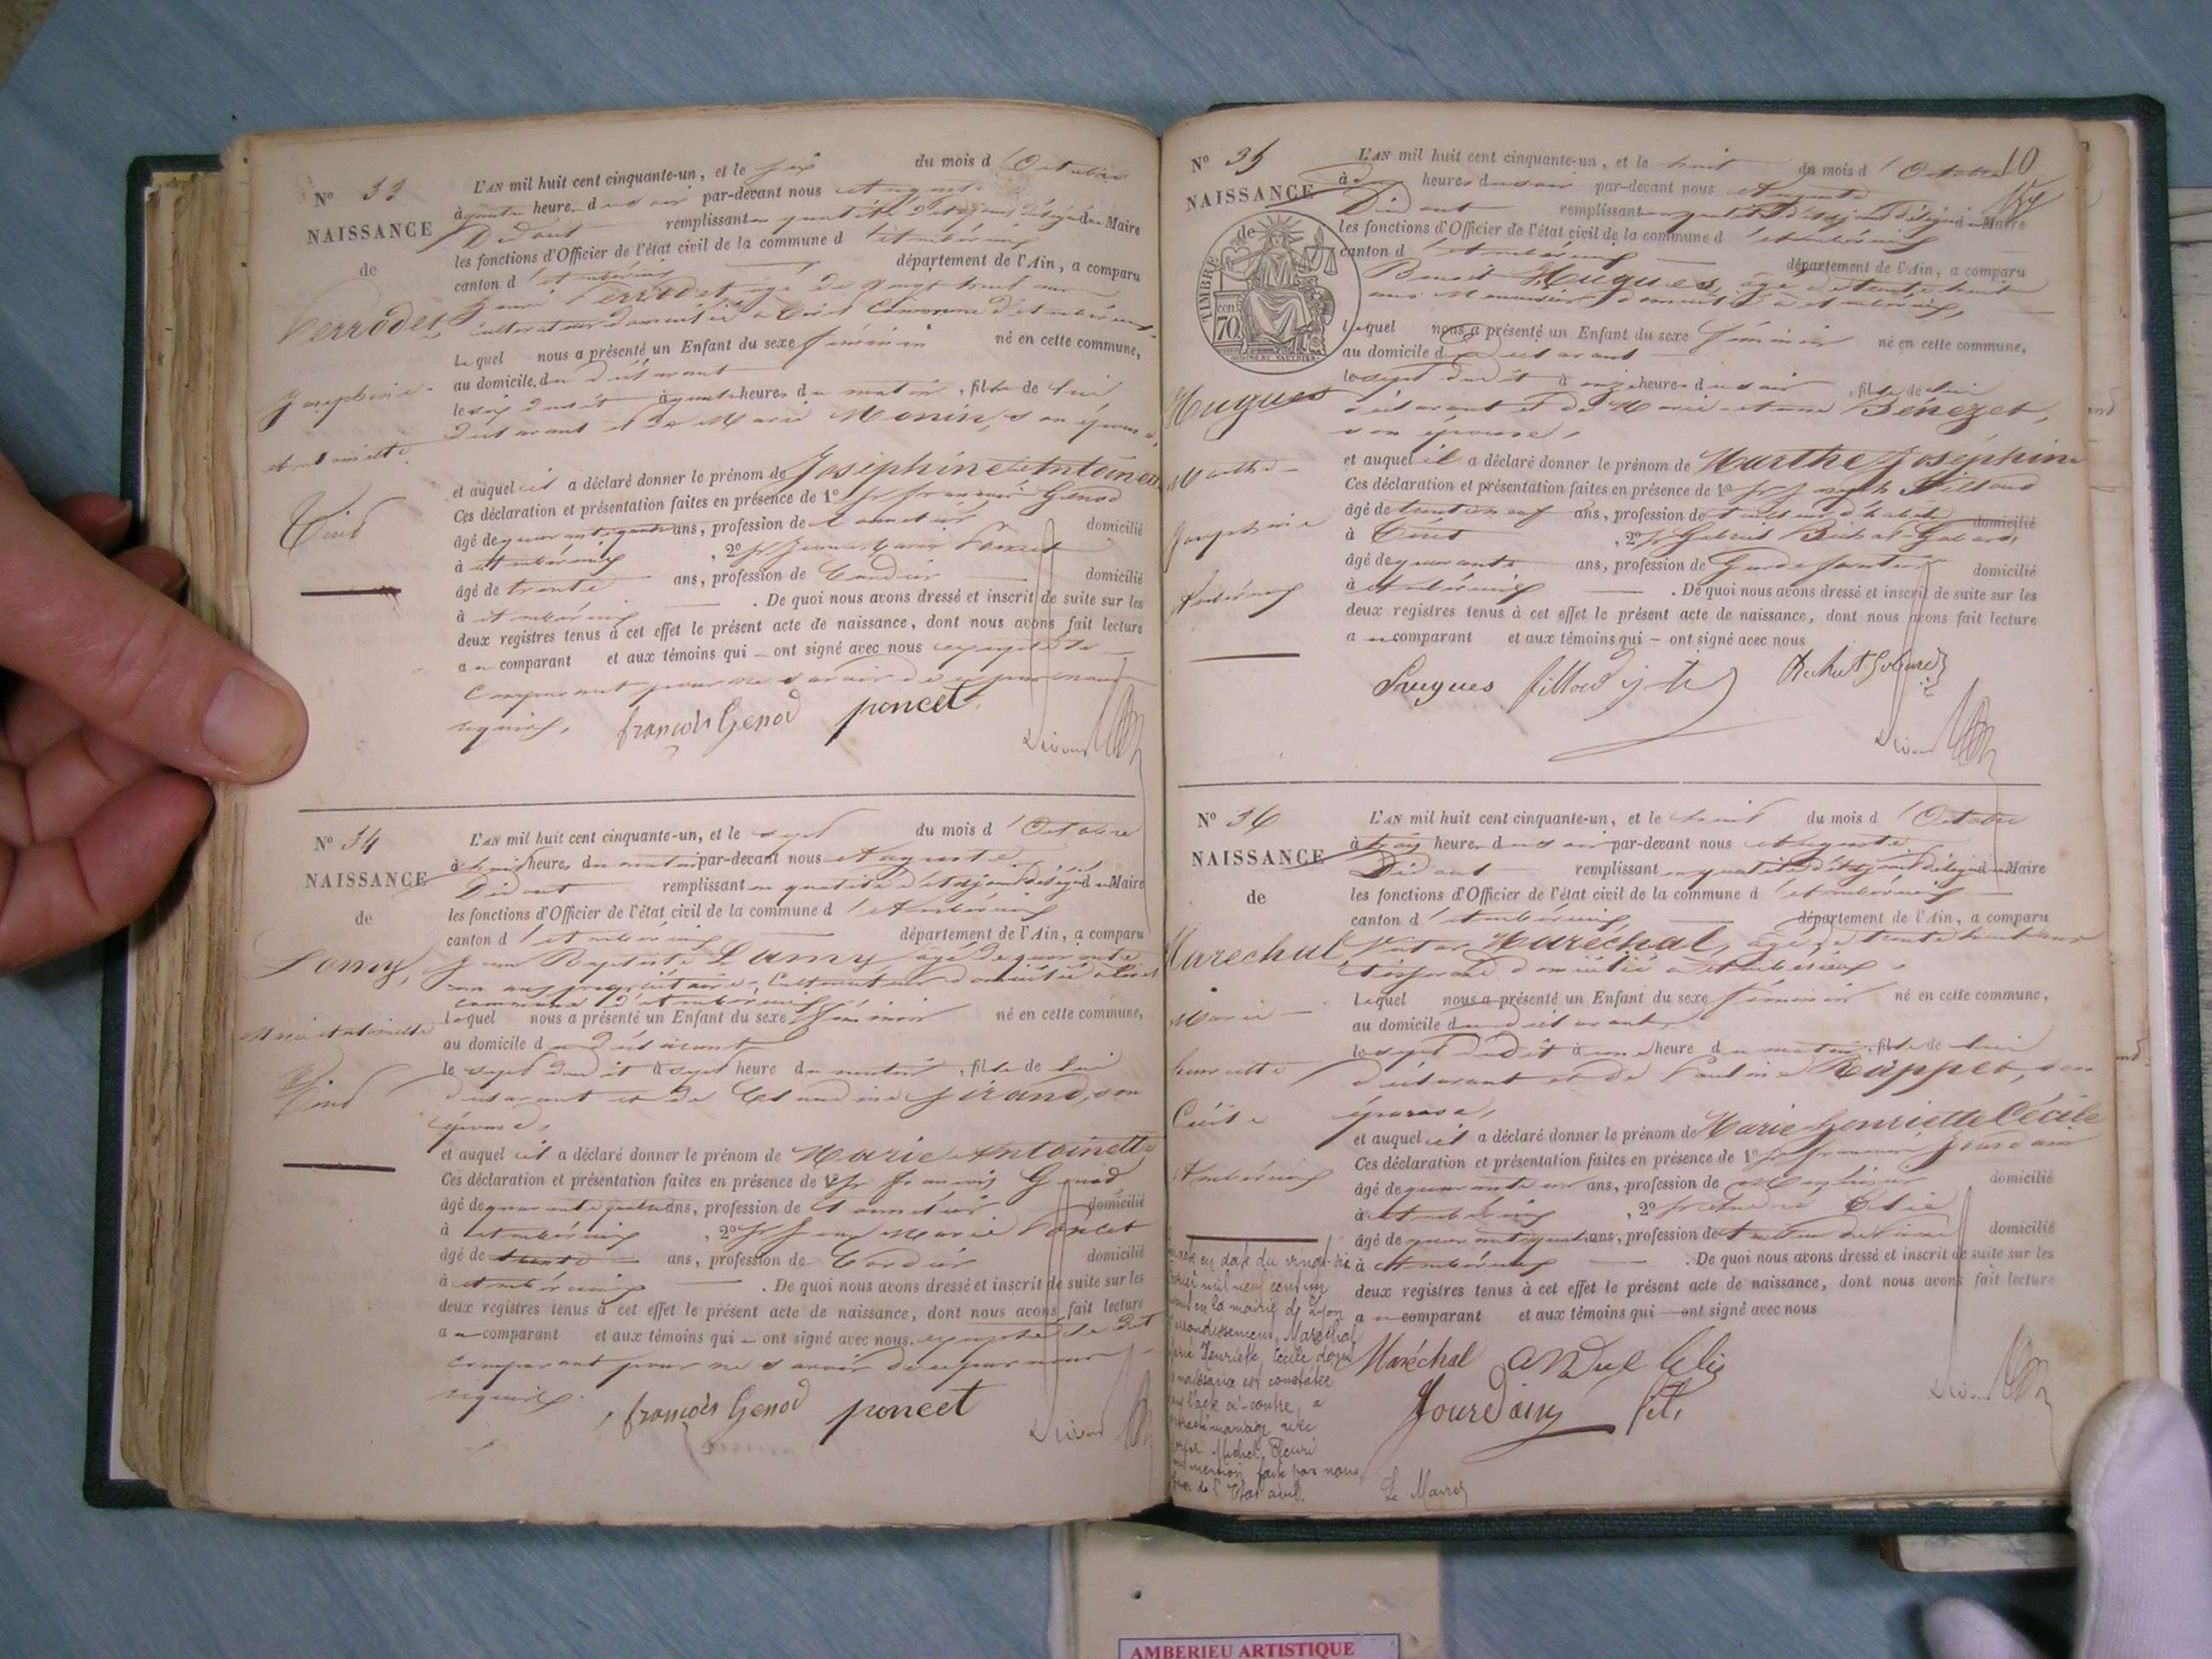 N° 33
NAISSANCE
de
Perrodet,
Josephine-
Antoinette.
Tiret
L'AN mil huit cent cinquante-un, et le six du mois d'Octobre
à quatre heures du soir par-devant nous Auguste
Didout remplissant en qualité d'adjoint délégué du Maire
les fonctions d'Officier de l'état civil de la commune d'Ambérieux
canton d'Ambérieux département de l'Ain, a comparu
Perrodet, âgé de vingt huit ans
cultivateur domicilié à Tiret Commune d'Ambérieux
Lequel nous a présenté un Enfant du sexe féminin né en cette commune,
au domicile du déclarant
le six dudit à quatre heures du matin, fille de lui
déclarant et de Marie Monin, son épouse,
et auquel il a déclaré donner le prénom de Joséphine Antoinette
Ces déclaration et présentation faites en présence de 1° Sr François Genod
âgé de quarante quatre ans, profession de Tonnelier domicilié
à Ambérieux, 2° Sr Jean Marie Poncet
âgé de trente ans, profession de Cordier domicilié
à Ambérieux. De quoi nous avons dressé et inscrit de suite sur les
deux registres tenus à cet effet le présent acte de naissance, dont nous avons fait lecture
au comparant et aux témoins qui ont signé avec nous excepté le
comparant pour ne savoir de ce par nous
requis.
françois Genod poncet
N° 34
NAISSANCE
de
Lamy,
Marie Antoinette
Tiret
L'AN mil huit cent cinquante-un, et le sept du mois d'Octobre
à huit heures du matin par-devant nous Auguste
Didout remplissant en qualité d'adjoint délégué du Maire
les fonctions d'Officier de l'état civil de la commune d'Ambérieux
canton d'Ambérieux département de l'Ain, a comparu
Jean Baptiste Lamy âgé de quarante
un ans propriétaire-Cultivateur domicilié à Tiret
commune d'Ambérieux
Lequel nous a présenté un Enfant du sexe féminin né en cette commune,
au domicile du déclarant
le sept dudit à sept heure du matin, fille de lui
déclarant et de Claudine Jérand, son
épouse,
et auquel il a déclaré donner le prénom de Marie Antoinette
Ces déclaration et présentation faites en présence de 1° Sr François Genod
âgé de quarante quatre ans, profession de Tonnelier domicilié
à Ambérieux, 2° Sr Jean Marie Poncet
âgé de trente ans, profession de Cordier domicilié
à Ambérieux. De quoi nous avons dressé et inscrit de suite sur les
deux registres tenus à cet effet le présent acte de naissance, dont nous avons fait lecture
au comparant et aux témoins qui ont signé avec nous excepté le dit
comparant pour ne savoir de ce par nous
requis.
françois Genod poncet
10
N° 35
NAISSANCE
de
TIMBRE
70 cen
Hugues
Marthe-
Josephine
Ambérieux
L'AN mil huit cent cinquante-un, et le huit du mois d'Octobre
à heures du soir par-devant nous Auguste
Didout remplissant en qualité d'adjoint délégué du Maire
les fonctions d'Officier de l'état civil de la commune d'Ambérieux
canton d'Ambérieux département de l'Ain, a comparu
Benoit Hugues, âgé de trente huit
ans Menuisier domicilié à Ambérieux,
Lequel nous a présenté un Enfant du sexe féminin né en cette commune,
au domicile du déclarant
le sept dudit à onze heures du soir, fille de lui
déclarant et de Marie-Anne Bénezet,
son épouse,
et auquel il a déclaré donner le prénom de Marthe Joséphine
Ces déclaration et présentation faites en présence de 1° Sr Joseph Tilloud
âgé de trente neuf ans, profession de tailleur d'habits domicilié
à Tiret, 2° Sr Gabriel Bichat-Gobard,
âgé de quarante ans, profession de Garde forestier domicilié
à Ambérieux. De quoi nous avons dressé et inscrit de suite sur les
deux registres tenus à cet effet le présent acte de naissance, dont nous avons fait lecture
au comparant et aux témoins qui ont signé avec nous
Hugues
N° 36
NAISSANCE
de
Marechal
Marie-
henriette
Cécile
Ambérieux
L'AN mil huit cent cinquante-un, et le huit du mois d'Octobre
à trois heures du soir par-devant nous Auguste
Didout remplissant en qualité d'adjoint délégué du Maire
les fonctions d'Officier de l'état civil de la commune d'Ambérieux
canton d'Ambérieux département de l'Ain, a comparu
Victor Maréchal, âgé de trente huit ans
Tisserand domicilié à Ambérieux,
Lequel nous a présenté un Enfant du sexe féminin né en cette commune,
au domicile du déclarant
le sept dudit à une heure du matin, fille de lui
déclarant et de Pauline Ruppet, son
épouse,
et auquel il a déclaré donner le prénom de Marie henriette Cécile
Ces déclaration et présentation faites en présence de 1° Sr François Jourdain
âgé de quarante un ans, profession de domicilié
à Ambérieux, 2° Sr André Célie
âgé de quarante quatre ans, profession de tailleur de pierre domicilié
à Ambérieux. De quoi nous avons dressé et inscrit de suite sur les
deux registres tenus à cet effet le présent acte de naissance, dont nous avons fait lecture
au comparant et aux témoins qui ont signé avec nous
Maréchal André Célie
Jourdain
en date du vingt-six
mil neuf cent un
en la mairie de Lyon
arrondissement, Maréchal
Marie Henriette Cécile dont
naissance est constatée
l'acte ci-contre, a
mariage avec
Michel Fleuri
mention faite par nous,
de l'Etat civil.
Le Maire
AMBERIEU ARTISTIQUE